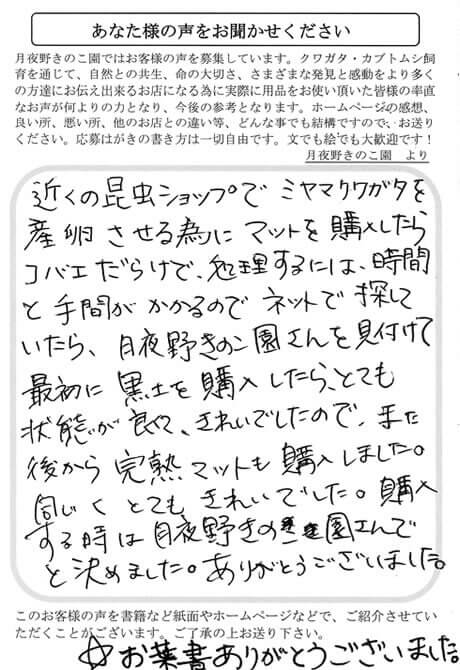 あなた様の声をお聞かせください
月夜野きのこ園ではお客様の声を募集しています。クワガタ・カブトムシ飼
育を通じて、自然との共生、命の大切さ、さまざまな発見と感動をより多く
の方達にお伝え出来るお店になる為に実際に用品をお使い頂いた皆様の率直
なお声が何よりの力となり、今後の参考となります。ホームページの感想、
良い所、悪い所、他のお店との違い等、どんな事でも結構ですので、お送り
ください。応募はがきの書き方は一切自由です。文でも絵でも大歓迎です！
月夜野きのこ園 より
近くの昆虫ショップで ミヤマクワガタを
産卵 させる為に マットを 購入したら
コバエ だらけで、処理するには、時間
と 手間が かかるので ネットで 探して
いたら、月夜野きのこ園さんを見付けて
最初に 黒土を 購入 したら、とても
状態が 良く、きれいでしたので、また
後から 完熟 マットも 購入しました。
同じく とても きれいでした。購入
する時は 月夜野きのこ園さんで
と 決めました。ありがとうございました。
このお客様の声を書籍など紙面やホームページなどで、ご紹介させてい
ただくことがございます。ご了承の上お送り下さい。
☆お葉書ありがとうございました。